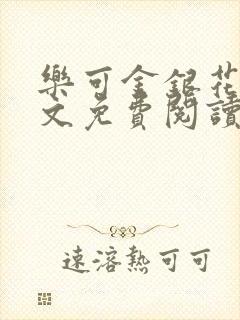 樂可金銀花
文免費閱讀
速溶熱可可